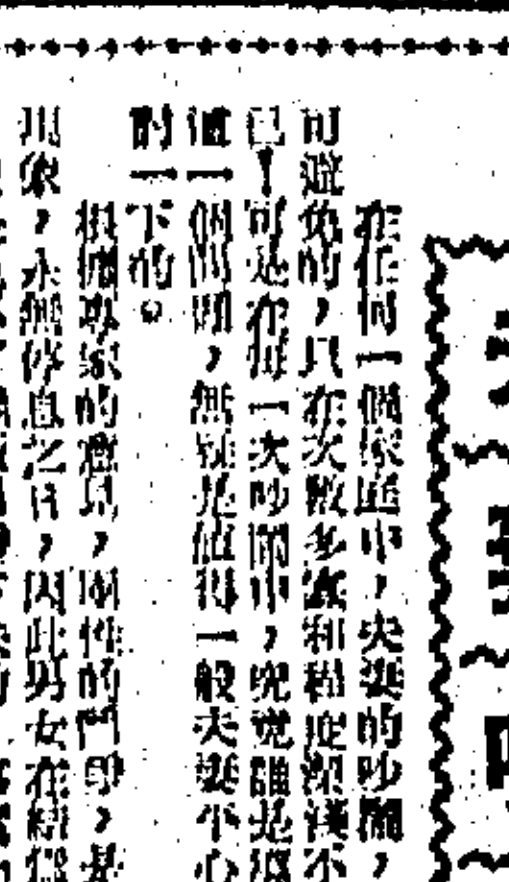 在任何一個家庭中，夫妻的吵鬧，
可避免的，只在次數多寡和程度深淺不
已！可是在每一次吵鬧中，究竟誰是
這一個問題，無疑是值得一般夫妻平心
酌一下的。
根據專家的意見，兩性的鬥爭，是
現象，永無停息之日，因此男女在結